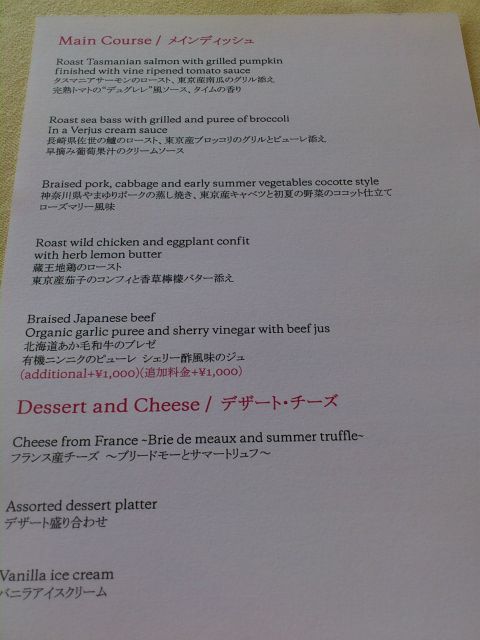 Main Course / メインディッシュ
Roast Tasmanian salmon with grilled pumpkin
finished with vine ripened tomato sauce
タスマニアサーモンのロースト、東京産南瓜のグリル添え
完熟トマトの"デュグレレ"風ソース、タイムの香り
Roast sea bass with grilled and puree of broccoli
In a Verjus cream sauce
長崎県佐世の鱸のロースト、東京産ブロッコリのグリルとピューレ添え
早摘み葡萄果汁のクリームソース
Braised pork, cabbage and early summer vegetables cocotte style
神奈川県やまゆりポークの蒸し焼き、東京産キャベツと初夏の野菜のココット仕立て
ローズマリー風味
Roast wild chicken and eggplant confit
with herb lemon butter
蔵王地鶏のロースト
東京産茄子のコンフィと香草檸檬バター添え
Braised Japanese beef
Organic garlic puree and sherry vinegar with beef jus
北海道あか毛和牛のブレゼ
有機ニンニクのピューレ シェリー酢風味のジュ
(additional+¥1,000)(追加料金+¥1,000)
Dessert and Cheese / デザート・チーズ
Cheese from France ~Brie de meaux and summer truffle~
フランス産チーズ ～ブリードモーとサマートリュフ～
Assorted dessert platter
デザート盛り合わせ
Vanilla ice cream
バニラアイスクリーム